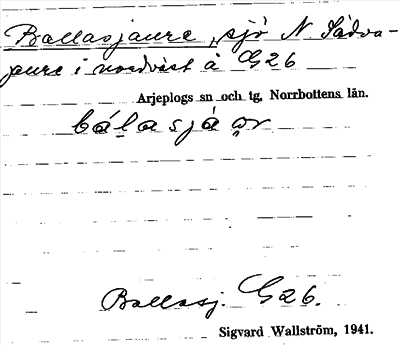 Ballasjaure, sjö N. Sadva-
jaure i nordväst å G26
Arjeplogs sn och tg, Norrbottens län.
bálasjáər
Ballasj. G26.
Sigvard Wallström, 1941.